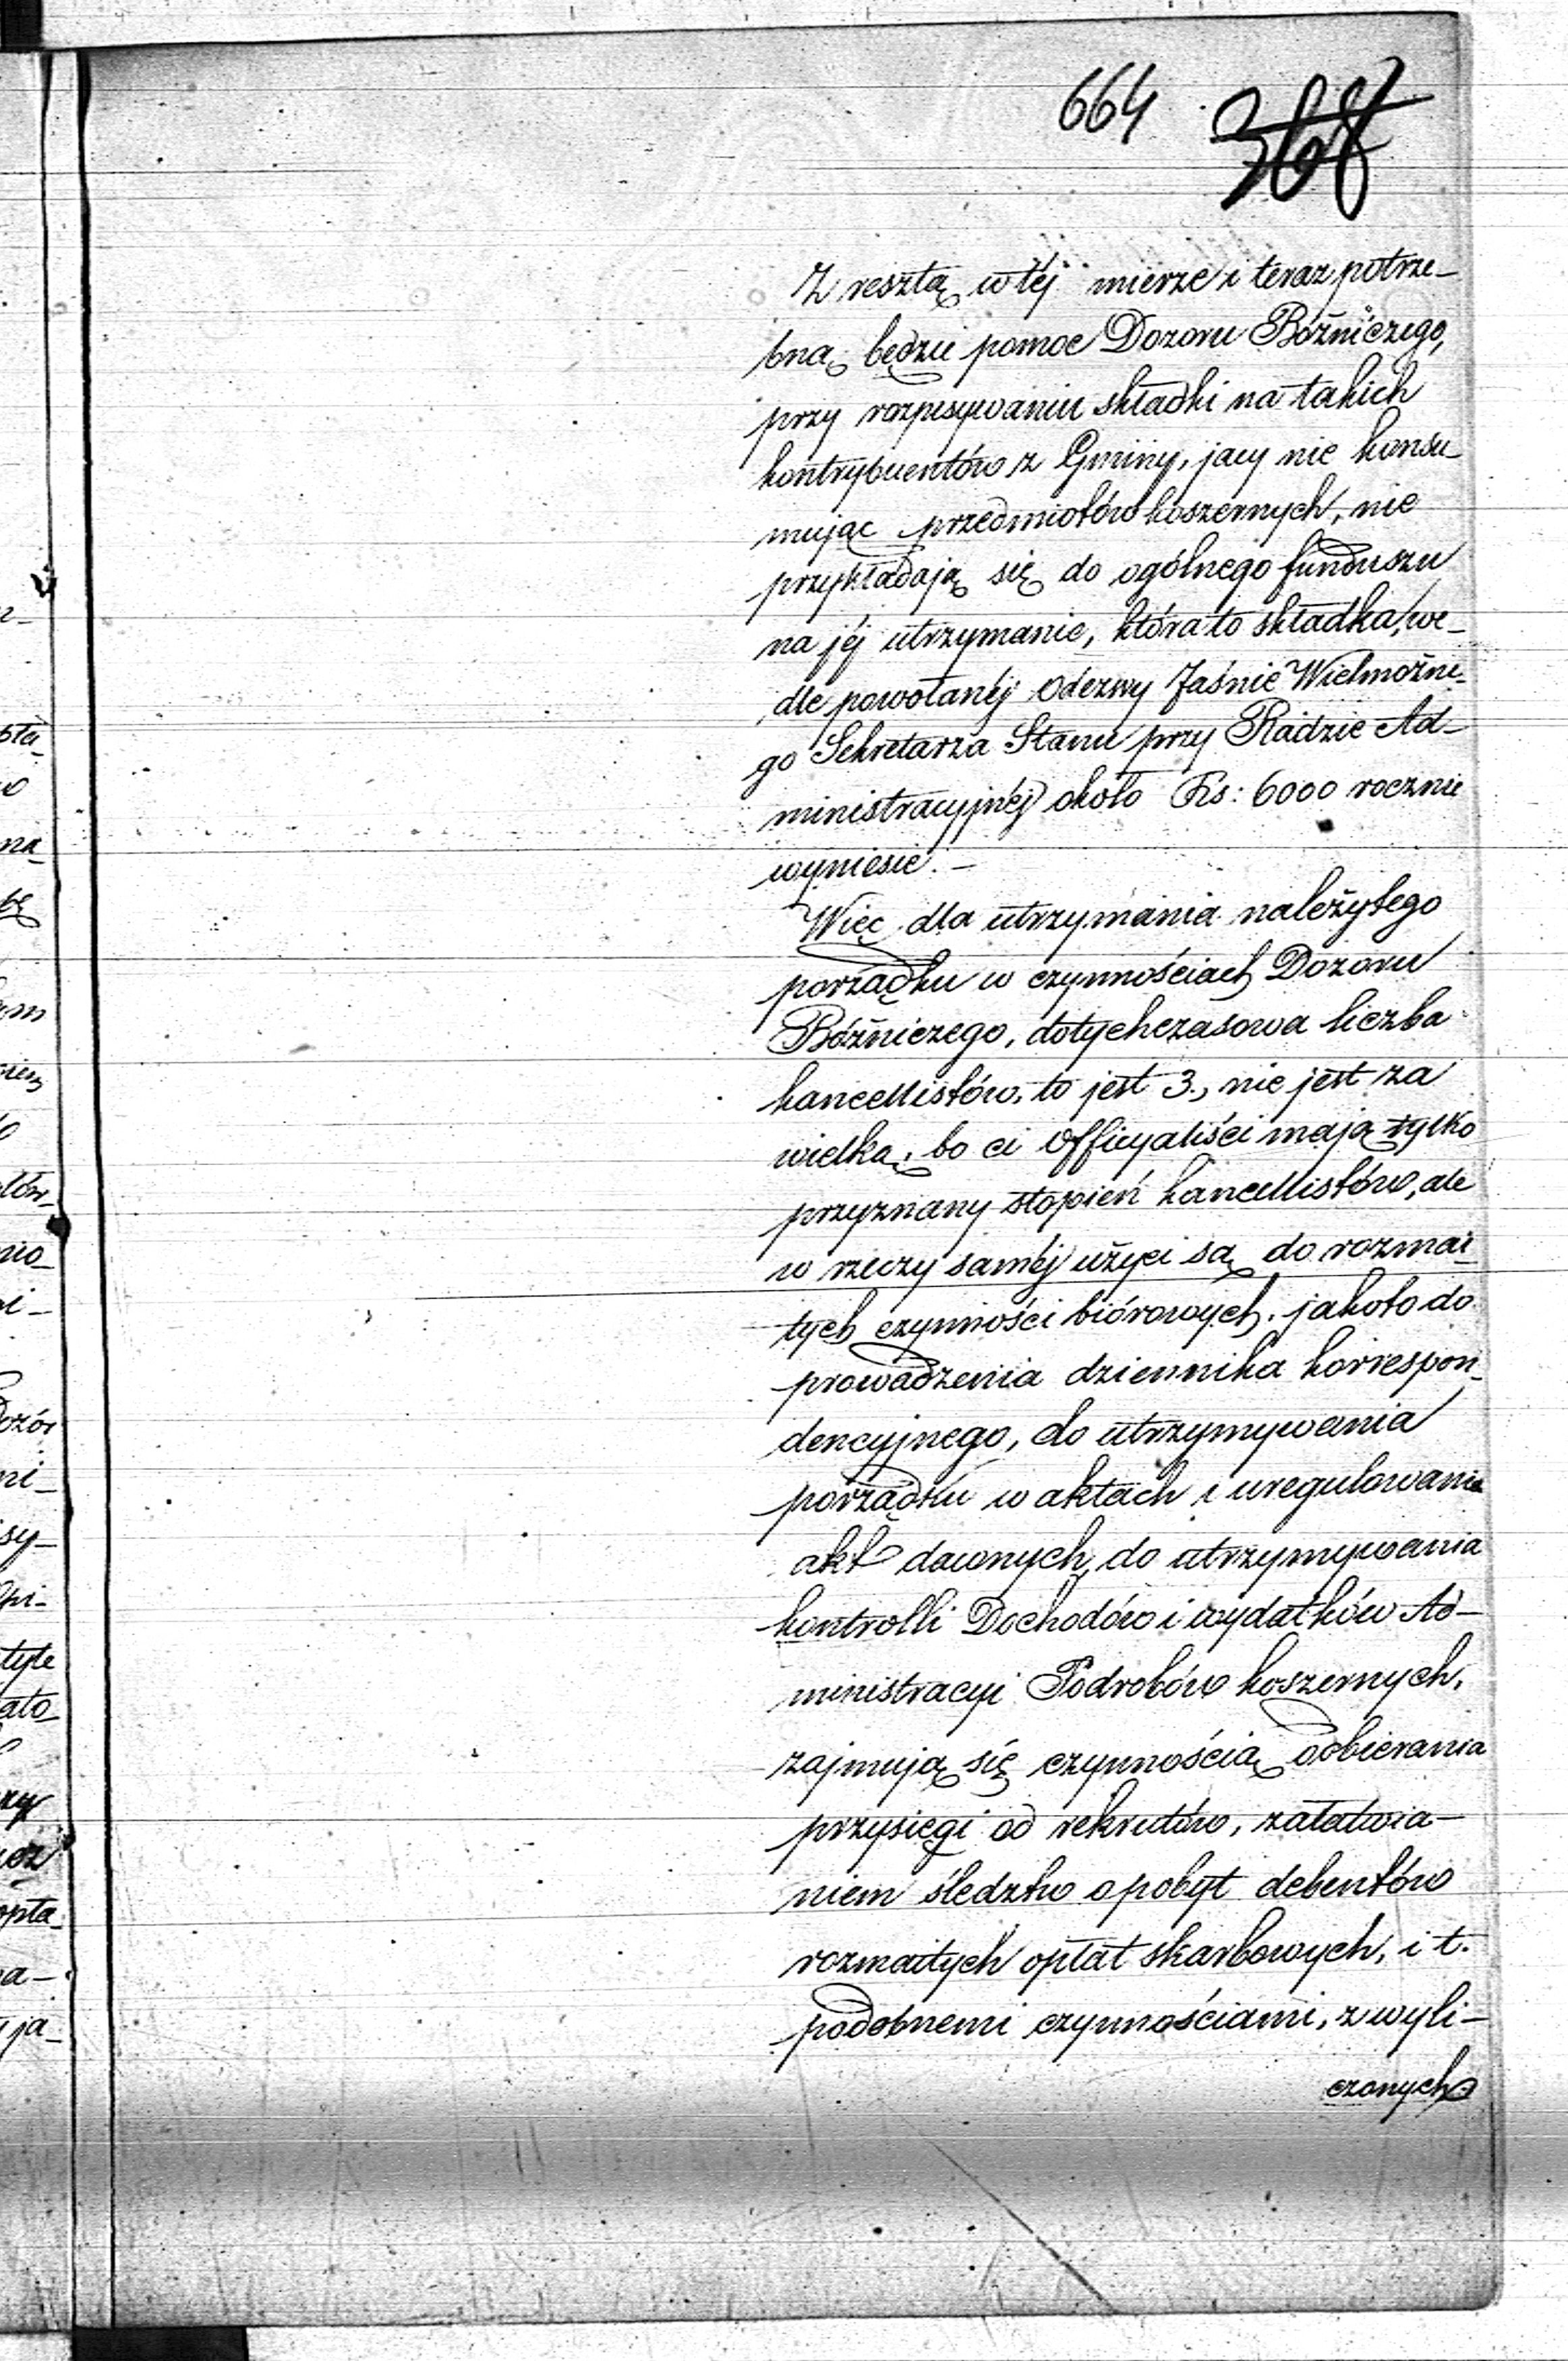 664 368
Z resztą w téj mierze i teraz potrze-
bną będzie pomoc Dozoru Bóźniczego,
przy rozpisywaniu składki na takich
kontrybuentów z Gminy, jacy nie konsu-
mując przedmiotów koszernych, nie
przykładają się do ogólnego funduszu
na jéj utrzymanie, która to składka, we-
dle powołanéj Odezwy Jaśnie Wielmożne-
go Sekretarza Stanu przy Radzie Ad-
ministracyjnéj około Rs: 6000 rocznie
wyniesie. -
Więc dla utrzymania należytego
porządku w czynnościach Dozoru
Bóźniczego, dotychczasowa liczba
kancellistów, to jest 3., nie jest za
wielką, bo ci Officyaliści mają tylko
przyznany stopień kancellistów, ale
w rzeczy saméj użyci są do rozmai-
tych czynności biórowych, jakoto do
prowadzenia dziennika korrespon-
dencyjnego, do utrzymywania
porządku w aktach i uregulowania
akt dawnych, do utrzymywania
kontrolli Dochodów i wydatków Ad-
ministracyi Podrobów koszernych,
zajmują się czynnością odbierania
przysięgi od rekrutów, załatwia-
niem śledztw o pobyt debentów
rozmaitych opłat skarbowych, i t.
podobnemi czynnościami, z wyli-
czonych